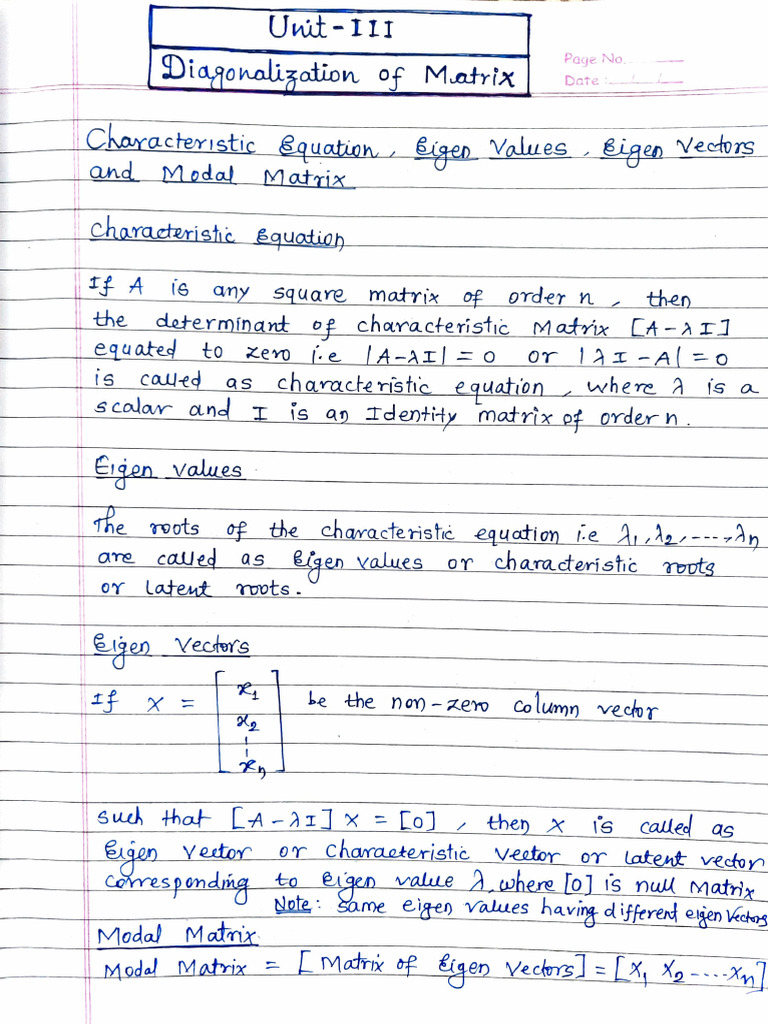 Unit-III
Diagonalization of Matrix
Page No.
Date :
Characteristic Equation, Eigen Values, Eigen Vectors
and Modal Matrix
Characteristic Equation
If A is any square matrix of order n, then
the determinant of characteristic Matrix [A-λI]
equated to zero i.e |A-λI| = 0 or |λI-A| = 0
is called as characteristic equation, where λ is a
scalar and I is an Identity matrix of order n.
Eigen values
The roots of the characteristic equation i.e λ1, λ2, ----, λn
are called as Eigen values or characteristic roots
or latent roots.
Eigen Vectors
If X = [x1 x2 ⋮ xn] be the non-zero column vector
such that [A-λI] X = [0], then X is called as
Eigen vector or characteristic vector or latent vector
corresponding to Eigen value λ, where [0] is null Matrix
Note: Same eigen values having different eigen vectors
Modal Matrix
Modal Matrix = [Matrix of Eigen Vectors] = [X1 X2 ---- Xn]